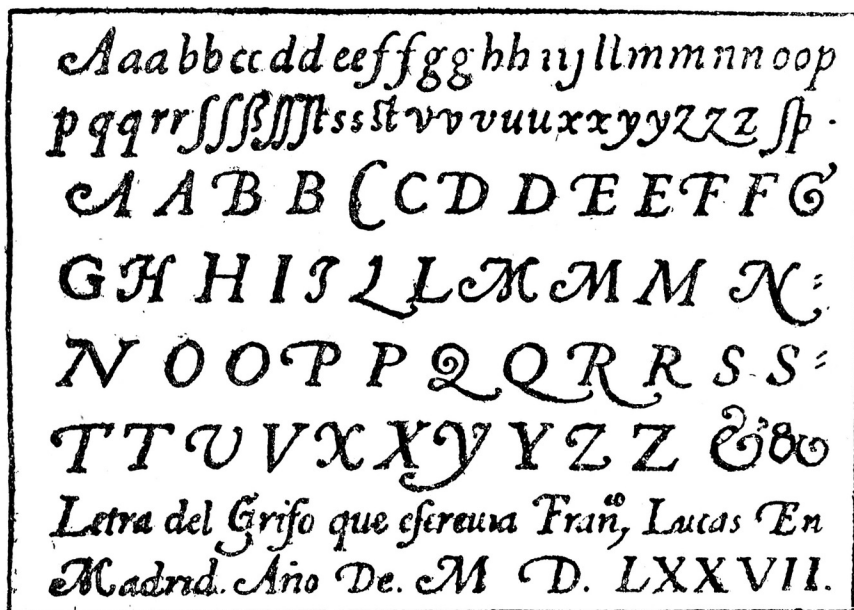 A a a b b c c d d e e f f g g h h ı ı j l l m m n n o o p
p q q r r ſ ſ ſ ß ſſ ſt s s st v v v u u x x y y z z z ſp .
A A B B C C D D E E F F G
G H H I J L L M M M N
N O O P P Q Q R R S S
T T V V X X Y Y Z Z & &
Letra del Grifo que eſcreuıa Fran.co, Lucas En
Madrıd. Año De. M D. LXXVII.